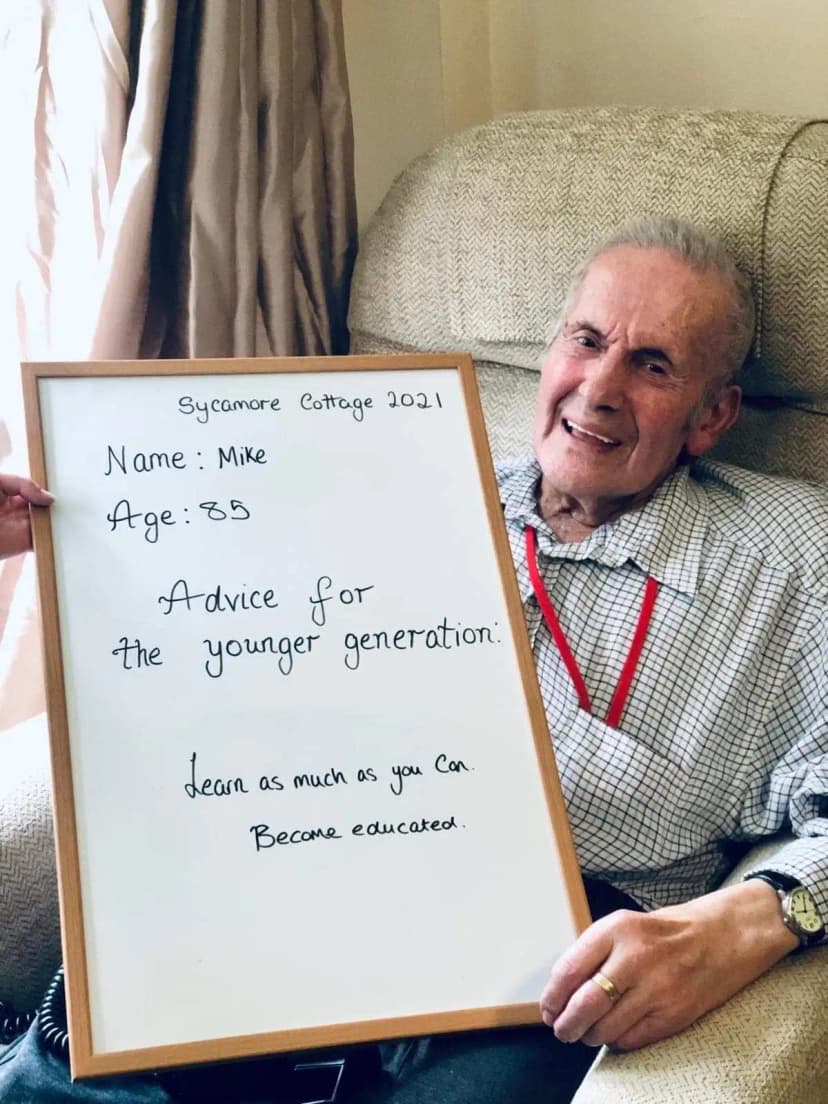 Sycamore Cottage 2021
Name: Mike
Age: 85
Advice for
the younger generation:
Learn as much as you can.
Become educated.